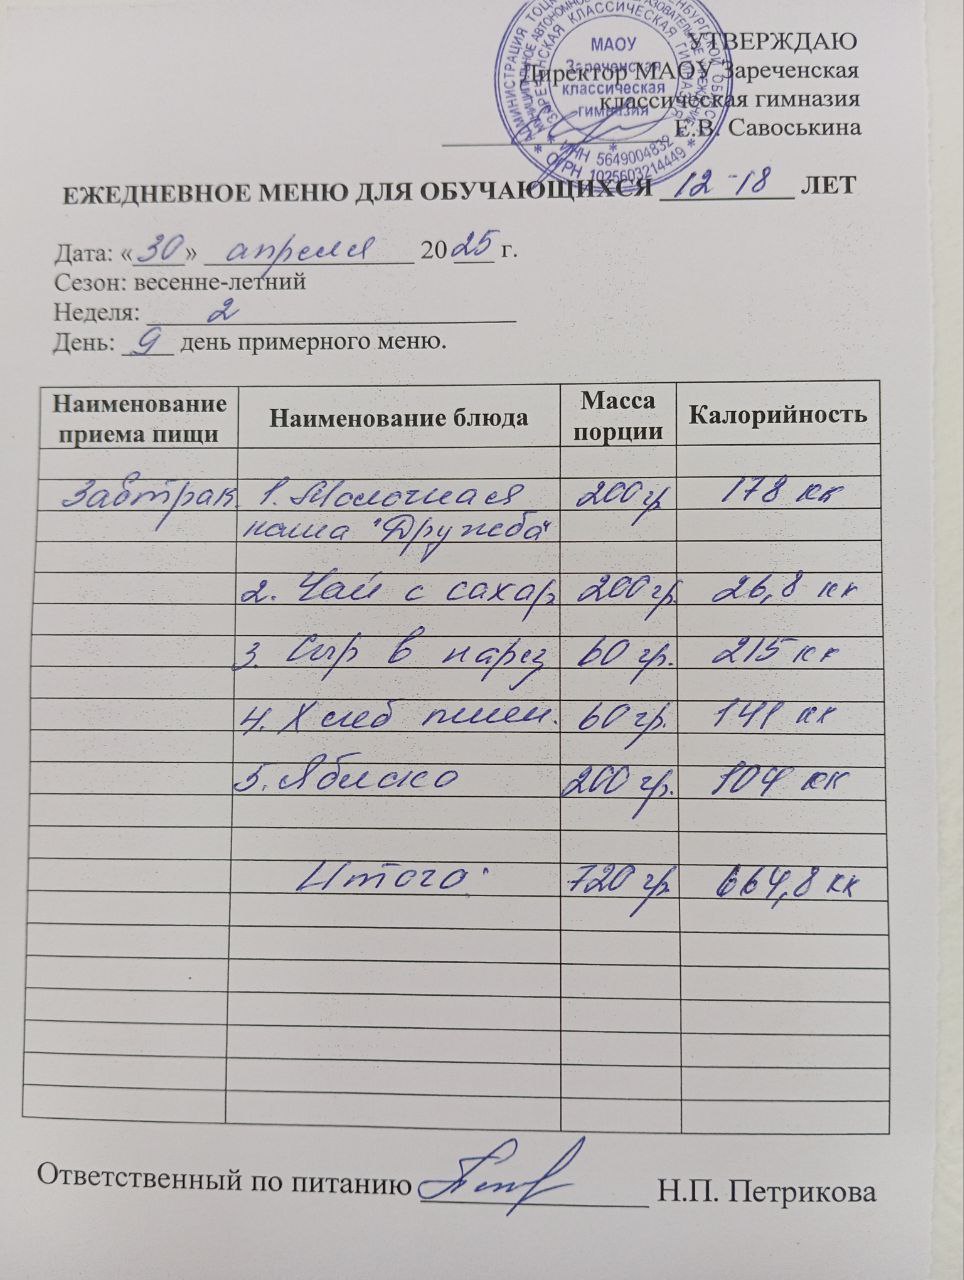 УТВЕРЖДАЮ
Директор МАОУ Зареченская
классическая гимназия
Е.В. Савоськина
МАОУ
Зареченская
классическая
гимназия
ИНН 5649004832
ОГРН 1025603214449
ЕЖЕДНЕВНОЕ МЕНЮ ДЛЯ ОБУЧАЮЩИХСЯ 12-18 ЛЕТ
Дата: «30» апреля 2025 г.
Сезон: весенне-летний
Неделя: 2
День: 9 день примерного меню.
Наименование приема пищи Наименование блюда Масса порции Калорийность
Завтрак 1. Молочная 200 гр 178 кк
каша "Дружба"
2. Чай с сахар 200 гр. 26,8 кк
3. Сыр в нарез 60 гр. 215 кк
4. Хлеб пшен. 60 гр. 141 кк
5. Яблоко 200 гр. 104 кк
Итого: 720 гр 664,8 кк
Ответственный по питанию Н.П. Петрикова